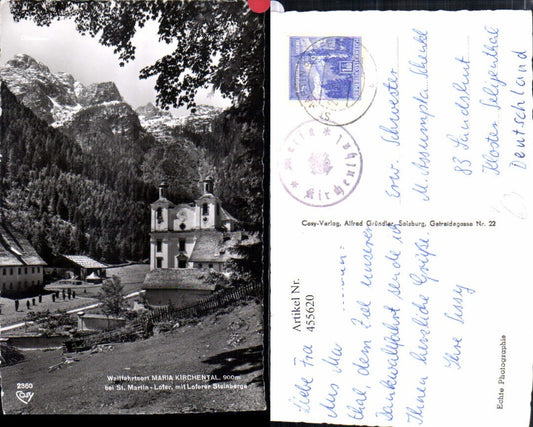 Wallfahrtsort MARIA KIRCHENTAL, 900m
bei St. Martin - Lofer, mit Loferer Steinberge
2360
Cosy
Maria
Kirchenthal
Ehrw. Schwester
M. Assumpta Scheidl
83 Landshut
Kloster Seligenthal
Deutschland
Cosy-Verlag, Alfred Gründler, Salzburg, Getreidegasse Nr. 22
Artikel Nr.
455620
Liebe Fra
Aus Ma
thal, dem Ziel unserer
Dankwallfahrt sende ich
Ihnen herzliche Grüße
Ihre Sussy
Echte Photographie